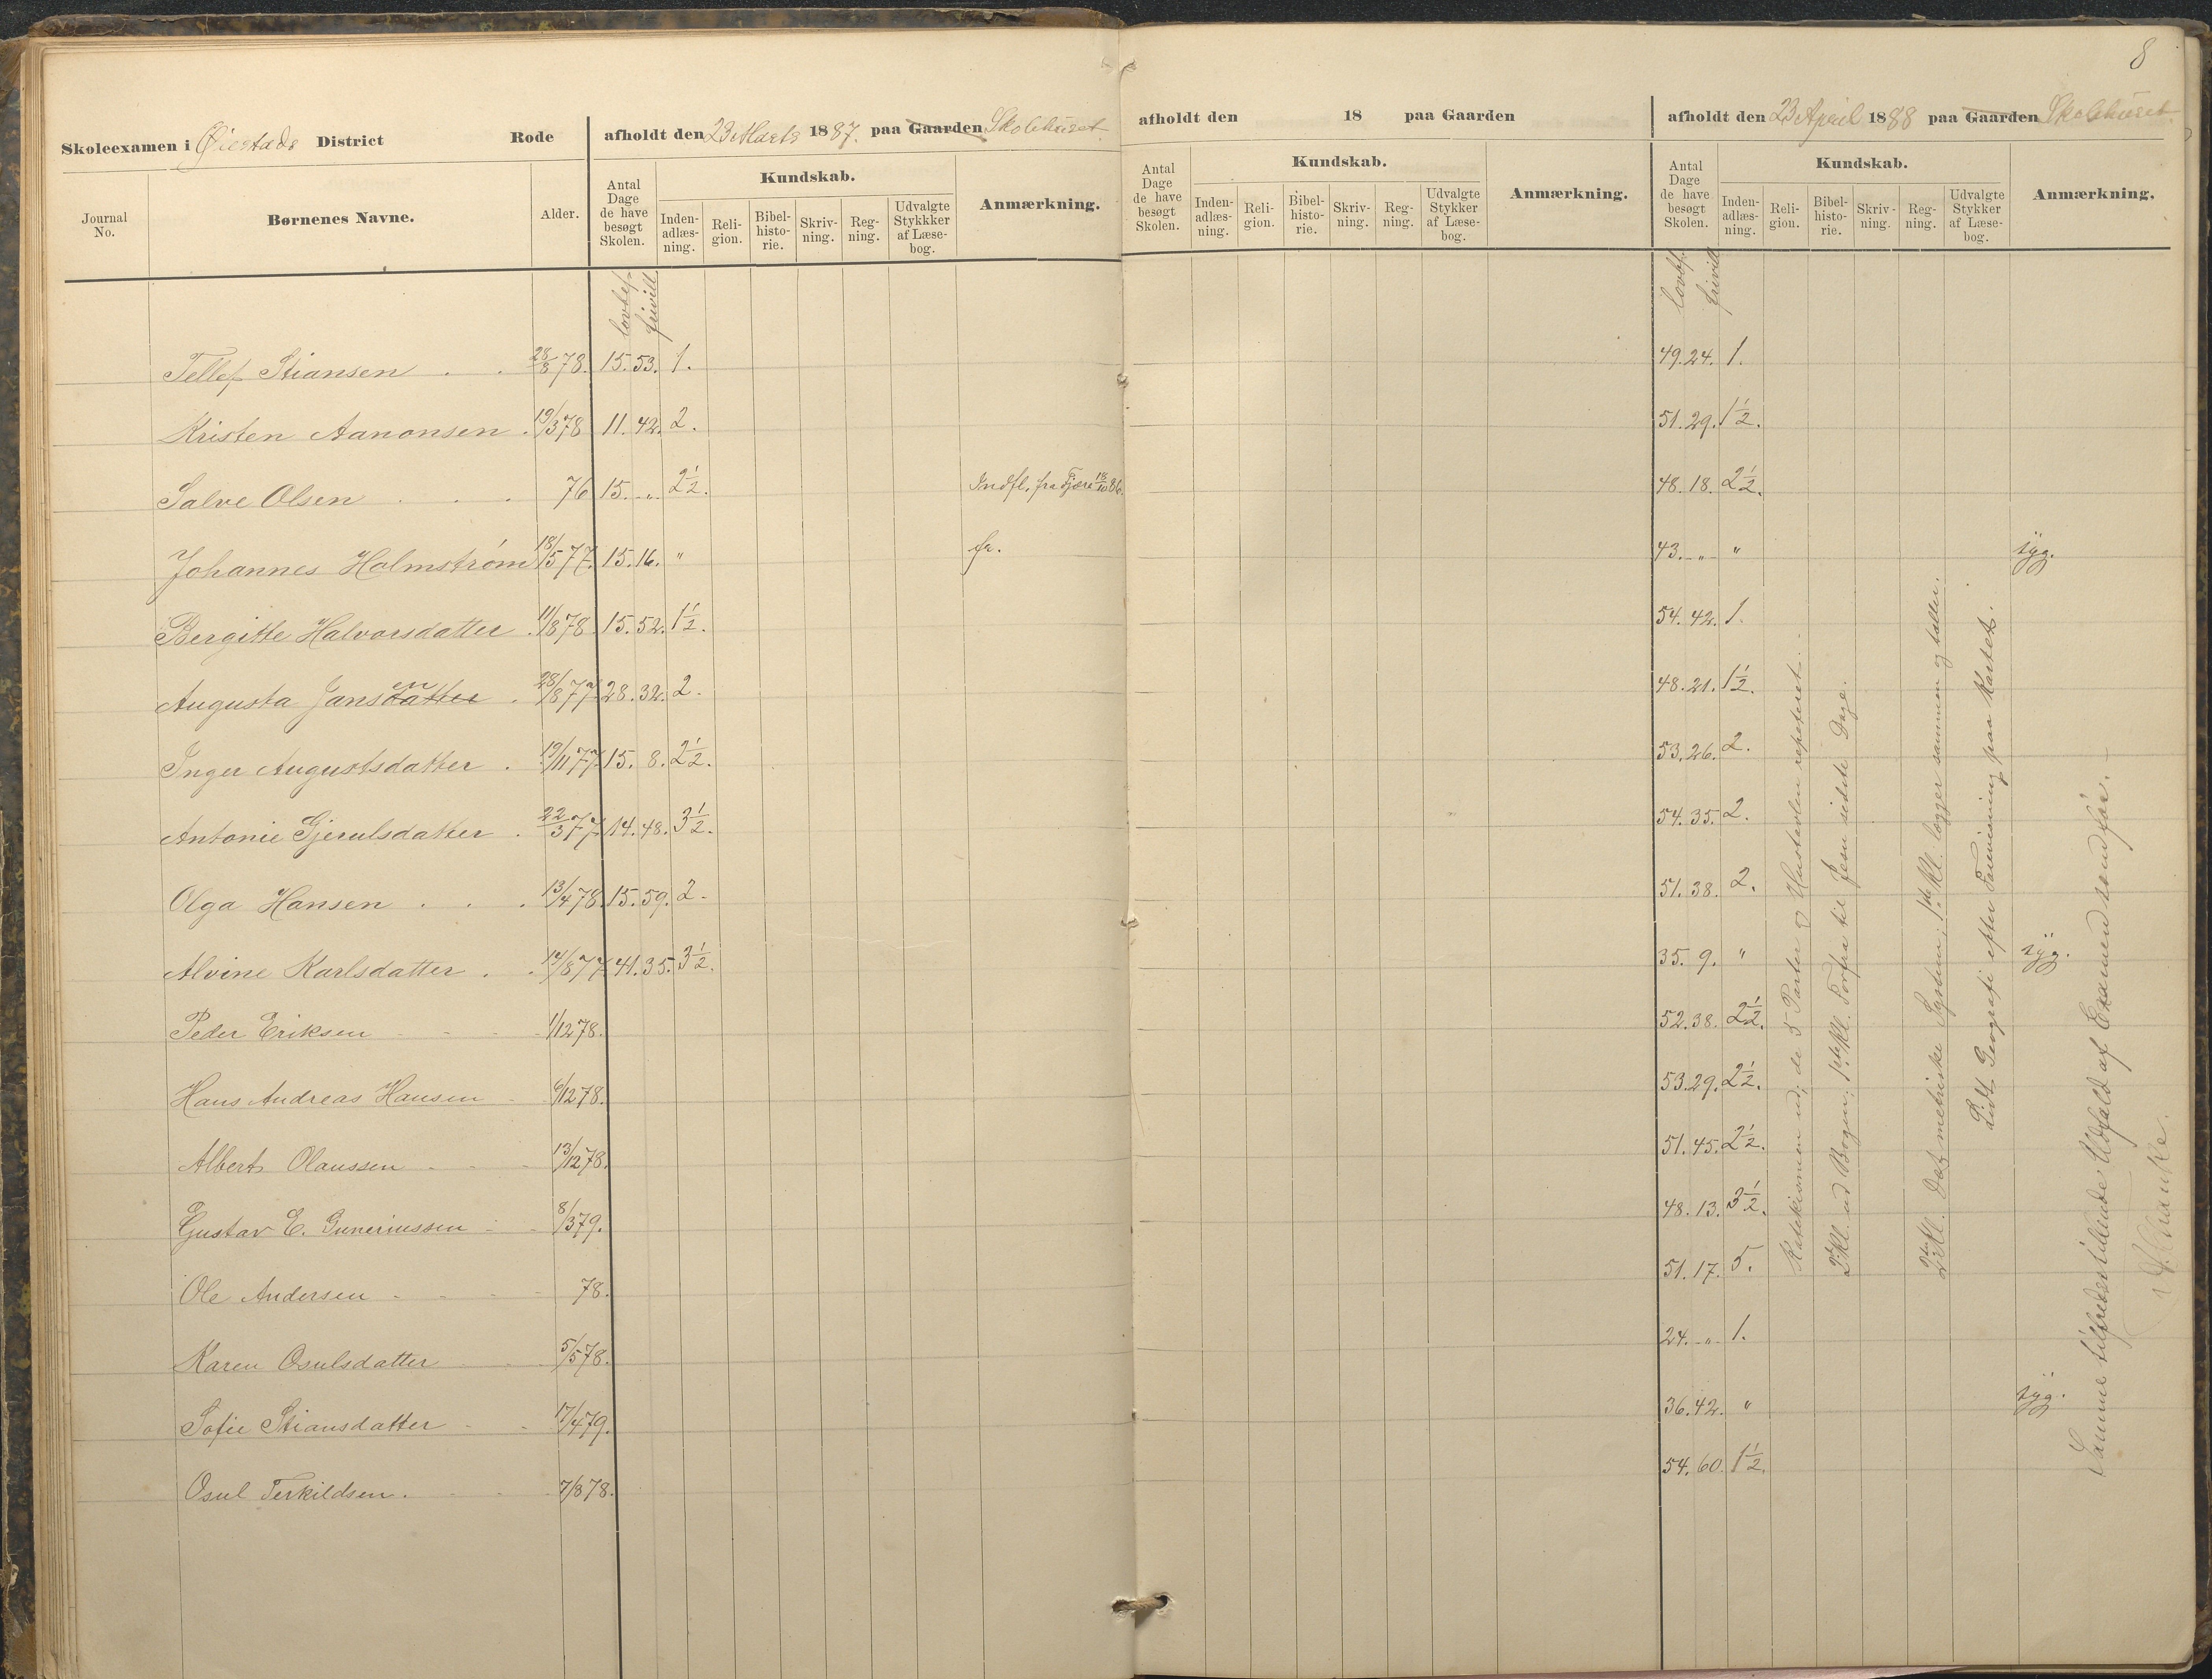 8
Skoleexamen i Øiestads District Rode afholdt den 23 Marts 1887. paa Gaarden Skolehuset
afholdt den 18 paa Gaarden
afholdt den 23 April 1888 paa Gaarden Skolehuset
Journal No. Børnenes Navne. Alder. Antal Dage de have besøgt Skolen. Kundskab. Inden-adlæs-ning. Reli-gion. Bibel-histo-rie. Skriv-ning. Reg-ning. Udvalgte Stykker af Læse-bog. Anmærkning.
Antal Dage de have besøgt Skolen. Kundskab. Inden-adlæs-ning. Reli-gion. Bibel-histo-rie. Skriv-ning. Reg-ning. Udvalgte Stykker af Læse-bog. Anmærkning.
Antal Dage de have besøgt Skolen. Kundskab. Inden-adlæs-ning. Reli-gion. Bibel-histo-rie. Skriv-ning. Reg-ning. Udvalgte Stykker af Læse-bog. Anmærkning.
lovbef. frivill. lovbef. frivill.
Tellef Stiansen . . 28/8 78. 15. 53. 1. 49. 24. 1.
Kristen Aanonsen . 19/3 78 11. 42. 2. 51. 29. 1½.
Salve Olsen . . . 76 15. „ 2½. Indfl. fra Fjære 18/10 86. 48. 18. 2½.
Johannes Holmstrøm 18/5 77. 15. 16. „ fr. 43. „ „ syg.
Bergitte Halvorsdatter . 11/8 78. 15. 52. 1½. 54. 42. 1.
Augusta Jansdatter en . 28/8 77. 28. 32. 2. 48. 21. 1½.
Inger Augustsdatter . 19/11 77. 15. 8. 2½. 53. 26. 2.
Antonie Gjerulsdatter . 22/3 77. 14. 48. 3½. 54. 35. 2.
Olga Hansen . . . 13/4 78. 15. 59. 2. 51. 38. 2.
Alvine Karlsdatter . . 14/8 77. 41. 35. 3½. 35. 9. „ syg.
Peder Eriksen 1/12 78. 52. 38. 2½.
Hans Andreas Hansen 6/12 78. 53. 29. 2½.
Albert Olaussen 13/12 78. 51. 45. 2½.
Gustav E. Guneriussen 8/3 79. 48. 13. 3½.
Ole Andersen 78. 51. 17. 5.
Karen Osulsdatter 5/5 78. 24. „ 1.
Sofie Stiansdatter 17/4 79. 36. 42. „ syg.
Osul Terkildsen. 7/8 78. 54. 60. 1½.
Katekismen ud; de 5 Parter og Hustavlen repeteret.
2 Kl. ud Bogen; 1ste Kl. Forfra til Jesu sidste Dage.
2den Kl. Det metriske System; 1ste Kl. lægger sammen og tæller.
Lidt Geografi efter Forevisning paa Kartet.
Samme tilfredsstillende Udfald af Examen som før.